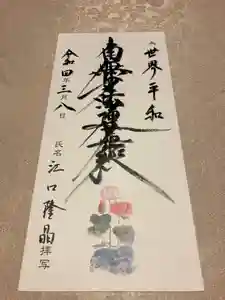 為世界平和
南無妙法蓮華経
令和四年三月八日
氏名 江口隆晶 拝写